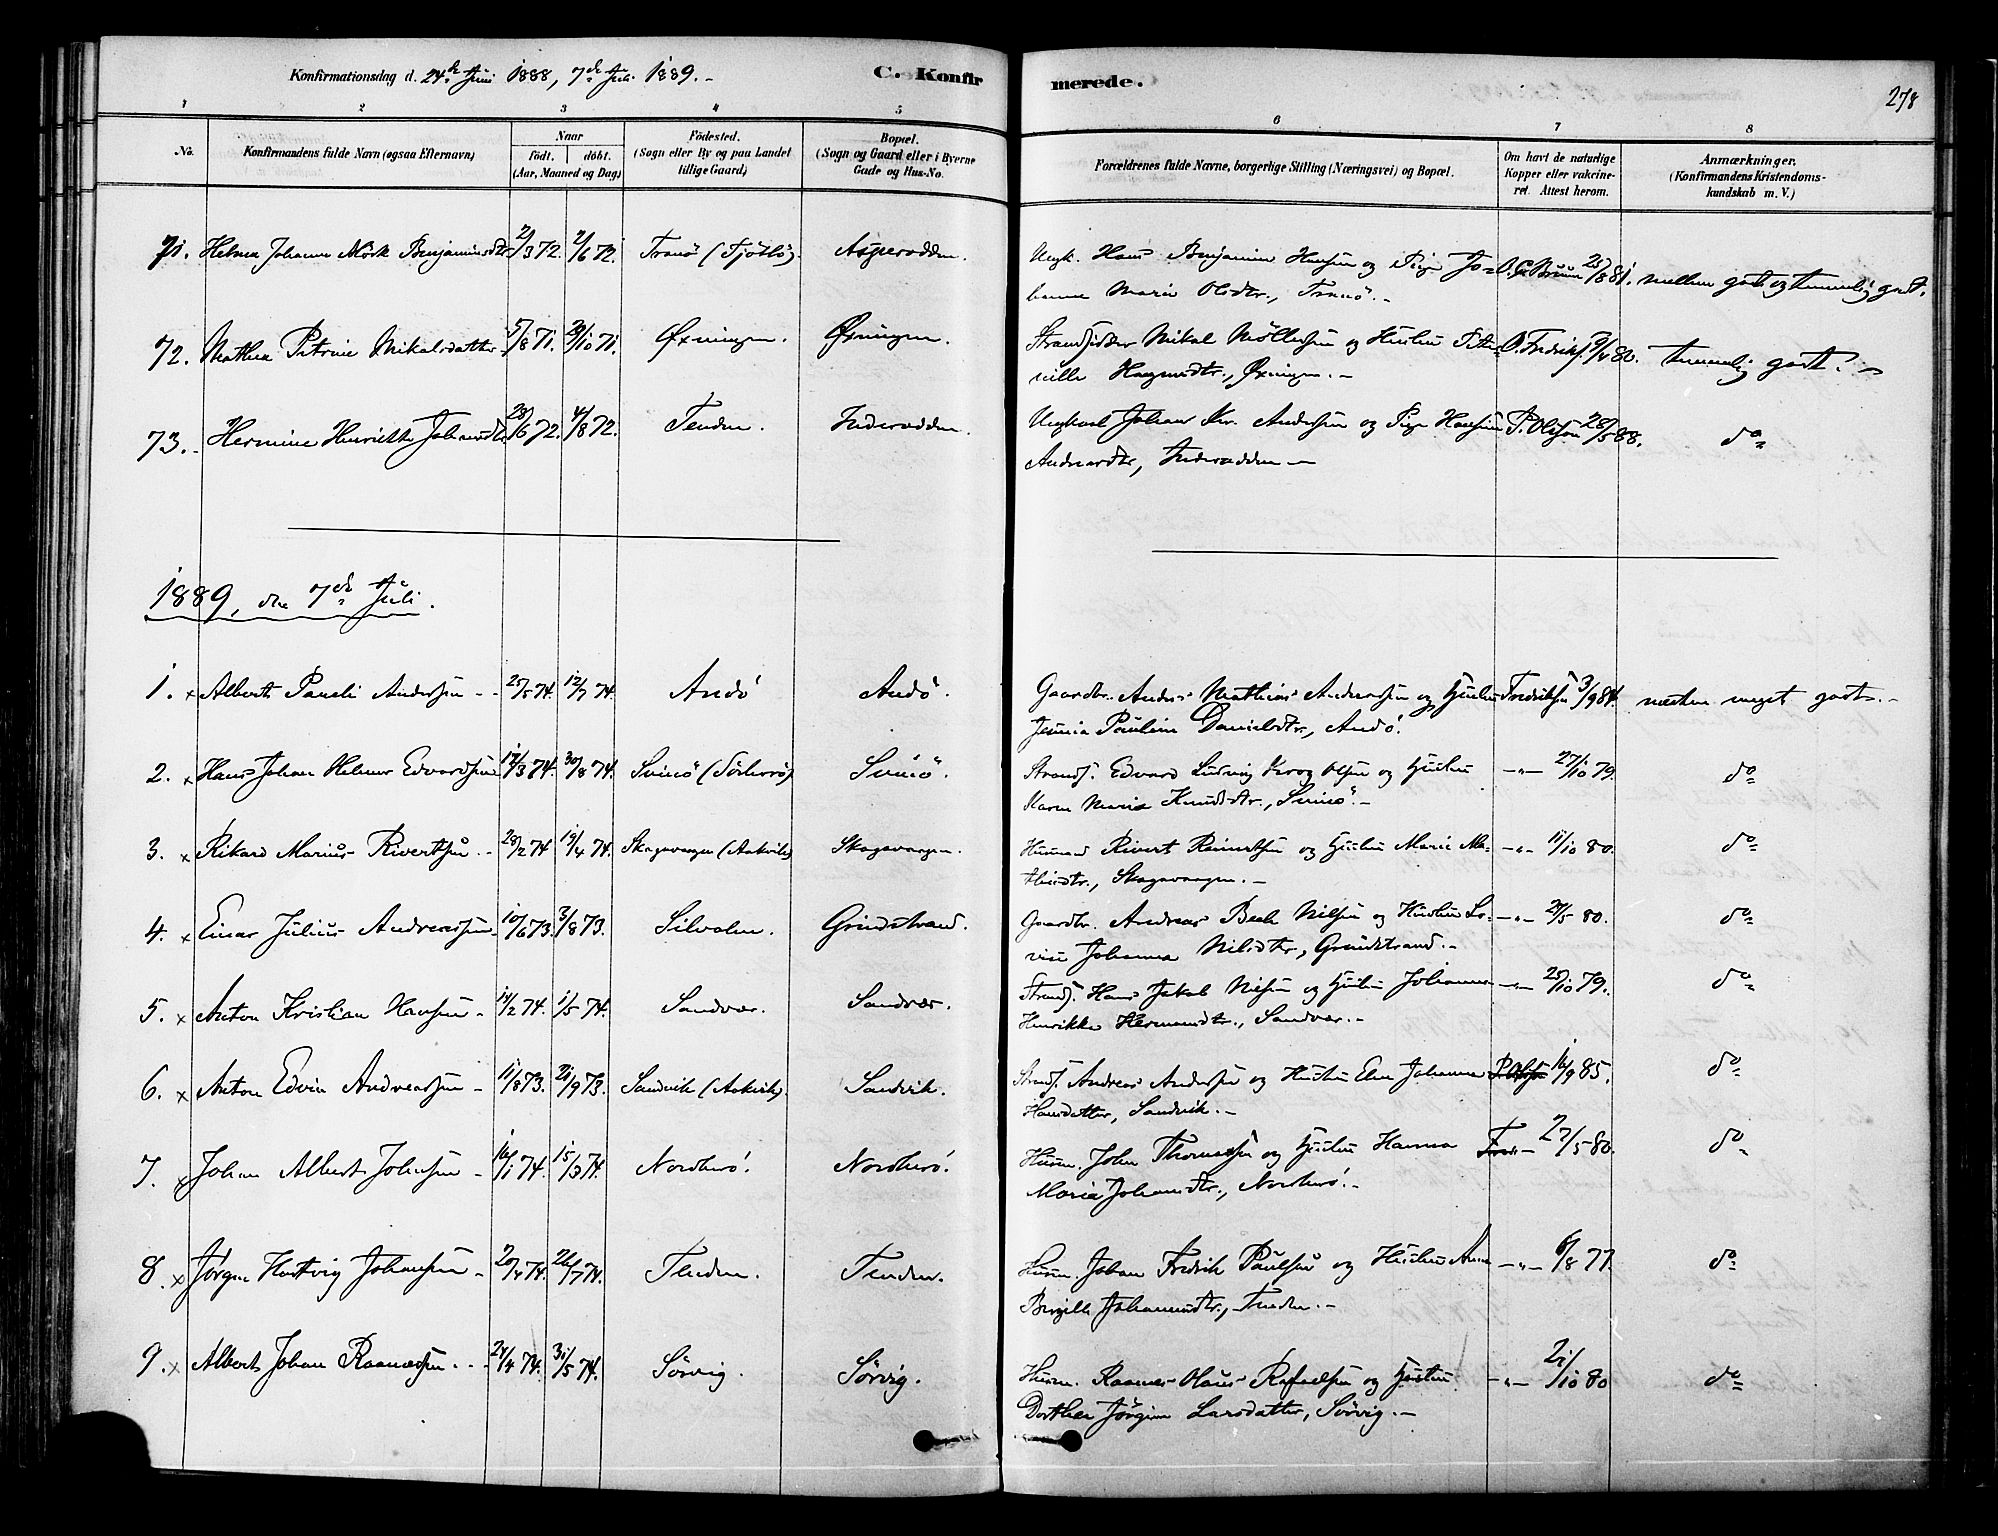 Konfirmationsdag d. 24de Juni 1888, 7de Juli 1889. –
C. Konfirmerede.
278
1 2 3 4 5 6 7 8
No.
Konfirmandens fulde Navn (ogsaa Efternavn)
Naar
födt. döbt.
(Aar, Maaned og Dag)
Födested.
(Sogn eller By og paa Landet
tillige Gaard)
Bopæl.
(Sogn og Gaard eller i Byerne
Gade og Hus-No.
Forældrenes fulde Navne, borgerlige Stilling (Næringsvei) og Bopæl.
Om havt de naturlige
Kopper eller vakcine-
ret. Attest herom.
Anmærkninger.
(Konfirmandens Kristendoms-
kundskab m. V.)
71. Johanne Mörk Benjaminsdtr. 2/3 72. 2/6 72. Tranö Asperodden. Ungk. Hans Benjamin Hansen og Pige Jo- 81. mellem godt og temmelig godt.
hanne Marie Olsdtr., Tranö. –
72. Mathea Petrine Mikalsdatter 5/8 71. 29/10 71. Øxningen. Øxningen. Strandsidder Mikal Möllersen og Hustru Peter- O. Fredriks. 82. temmelig godt. –
nille Øxningen. –
73. Hermine Henriette Johansdtr. 28/6 72. 4/8 72. Tenden. Inderodden. Ungkarl Johan Kr. Andersen og Pige P. Olsson 28/5 88. do
Andreasdtr, Inderodden –
1889, den 7de Juli.
1. x Albert Pareli Andersen – 25/5 74. 12/7 74. Andö Andö. Gaardbr. Anders Mathias Andersen og Hustru Fredriksen 3/9 84. næsten meget godt. –
Jensia Pauline Danielsdtr., Andö.
2. x Hans Johan Helmer Edvardsen 17/3 74. 30/8 74. Svinö Svinö. Strands. Edvard Ludvig Krog Olsen og Hustru –„– 27/10 79. do
Karen Maria Knudsdtr., Svinö. –
3. x Rikard Marius Rivertsen – 28/2 74 19/4 74. Skagavaagen (Aakvik) Skagavaagen. Husmand Rivert Reinertsen og Hustru Marie Ma- –„– 11/10 80. do
thisdtr., Skagavaagen. –
4. x Einar Julius Andreassen 10/6 73. 3/8 73. Silvalen. Grindstrand. Gaardbr. Andreas Bech Nilsen og Hustru Lo- –„– 80. do
vise Johanna Nilsdtr., Grindstrand. –
5. x Anton Kristian Hansen – 14/2 74. 1/5 74. Sandvær. Sandvær. Strands. Hans Jakob Nilsen og Hustru Johanna –„– 25/10 79. do
Henrikke Hermansdtr., Sandvær. –
6. x Anton Edvin Andreassen – 11/8 73. 21/9 73. Sandvik (Aakvik). Sandvik. Strands. Andreas Andersen og Hustru Elen Johanna P. Olsson 16/9 85. do
Hansdatter, Sandvik. –
7. x Johan Albert Johnsen – 16/1 74. 15/3 74. Nordherö. Nordherö. Husm. John Thomassen og Hustru Hanna 27/5 80. do
Maria Johansdtr., Nordherö. –
8. x Jörgen Hartvig Johansen – 20/4 74. 26/7 74. Tenden. Tenden. Husm. Johan Fredrik Paulsen og Hustru Anne –„– 6/8 77. do
Bergitte Johannesdtr., Tenden. –
9. x Albert Johan Rasmussen – 24/4 74. 31/5 74. Sörvig. Sörvig. Husm. Rasmus Olaus Rafaelsen og Hustru –„– 21/10 80 do
Dorthea Jörgine Larsdatter, Sörvig. –